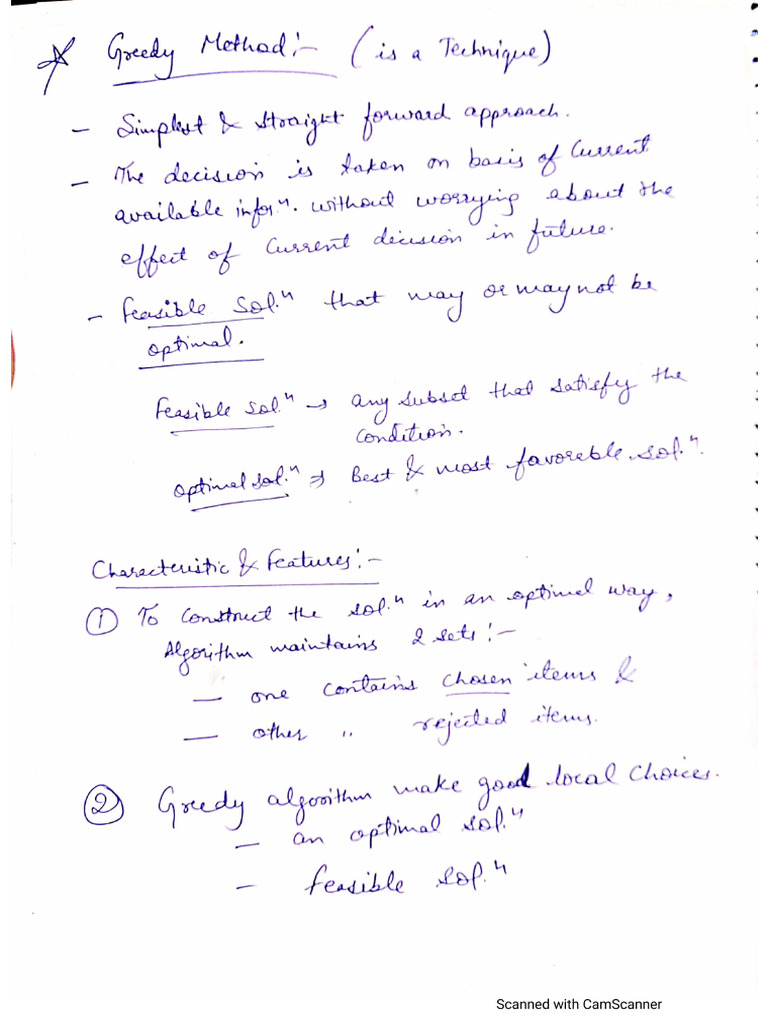 Greedy Method:- (is a Technique)
- Simplest & straight forward approach.
- The decision is taken on basis of current
available inforⁿ. without worrying about the
effect of current decision in future.
- feasible solⁿ that may or may not be
optimal.
feasible sol.ⁿ → any subset that satisfy the
condition.
optimal sol.ⁿ ⇒ Best & most favorable sol.ⁿ.
Characteristic & Features:-
① To construct the sol.ⁿ in an optimal way,
Algorithm maintains 2 sets:-
- one contains chosen items &
- other " rejected items.
② Greedy algorithm make good local choices.
- an optimal sol.ⁿ
- feasible sol.ⁿ
Scanned with CamScanner